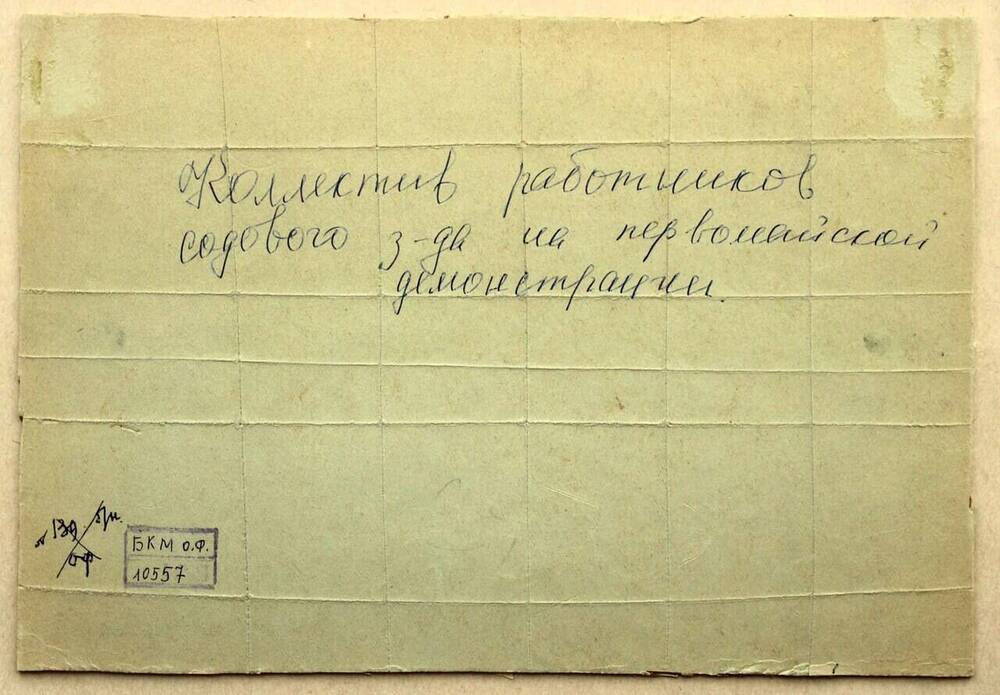 Коллектив работников
содового з-да на первомайской
демонстрации.
БКМ О.Ф.
10557